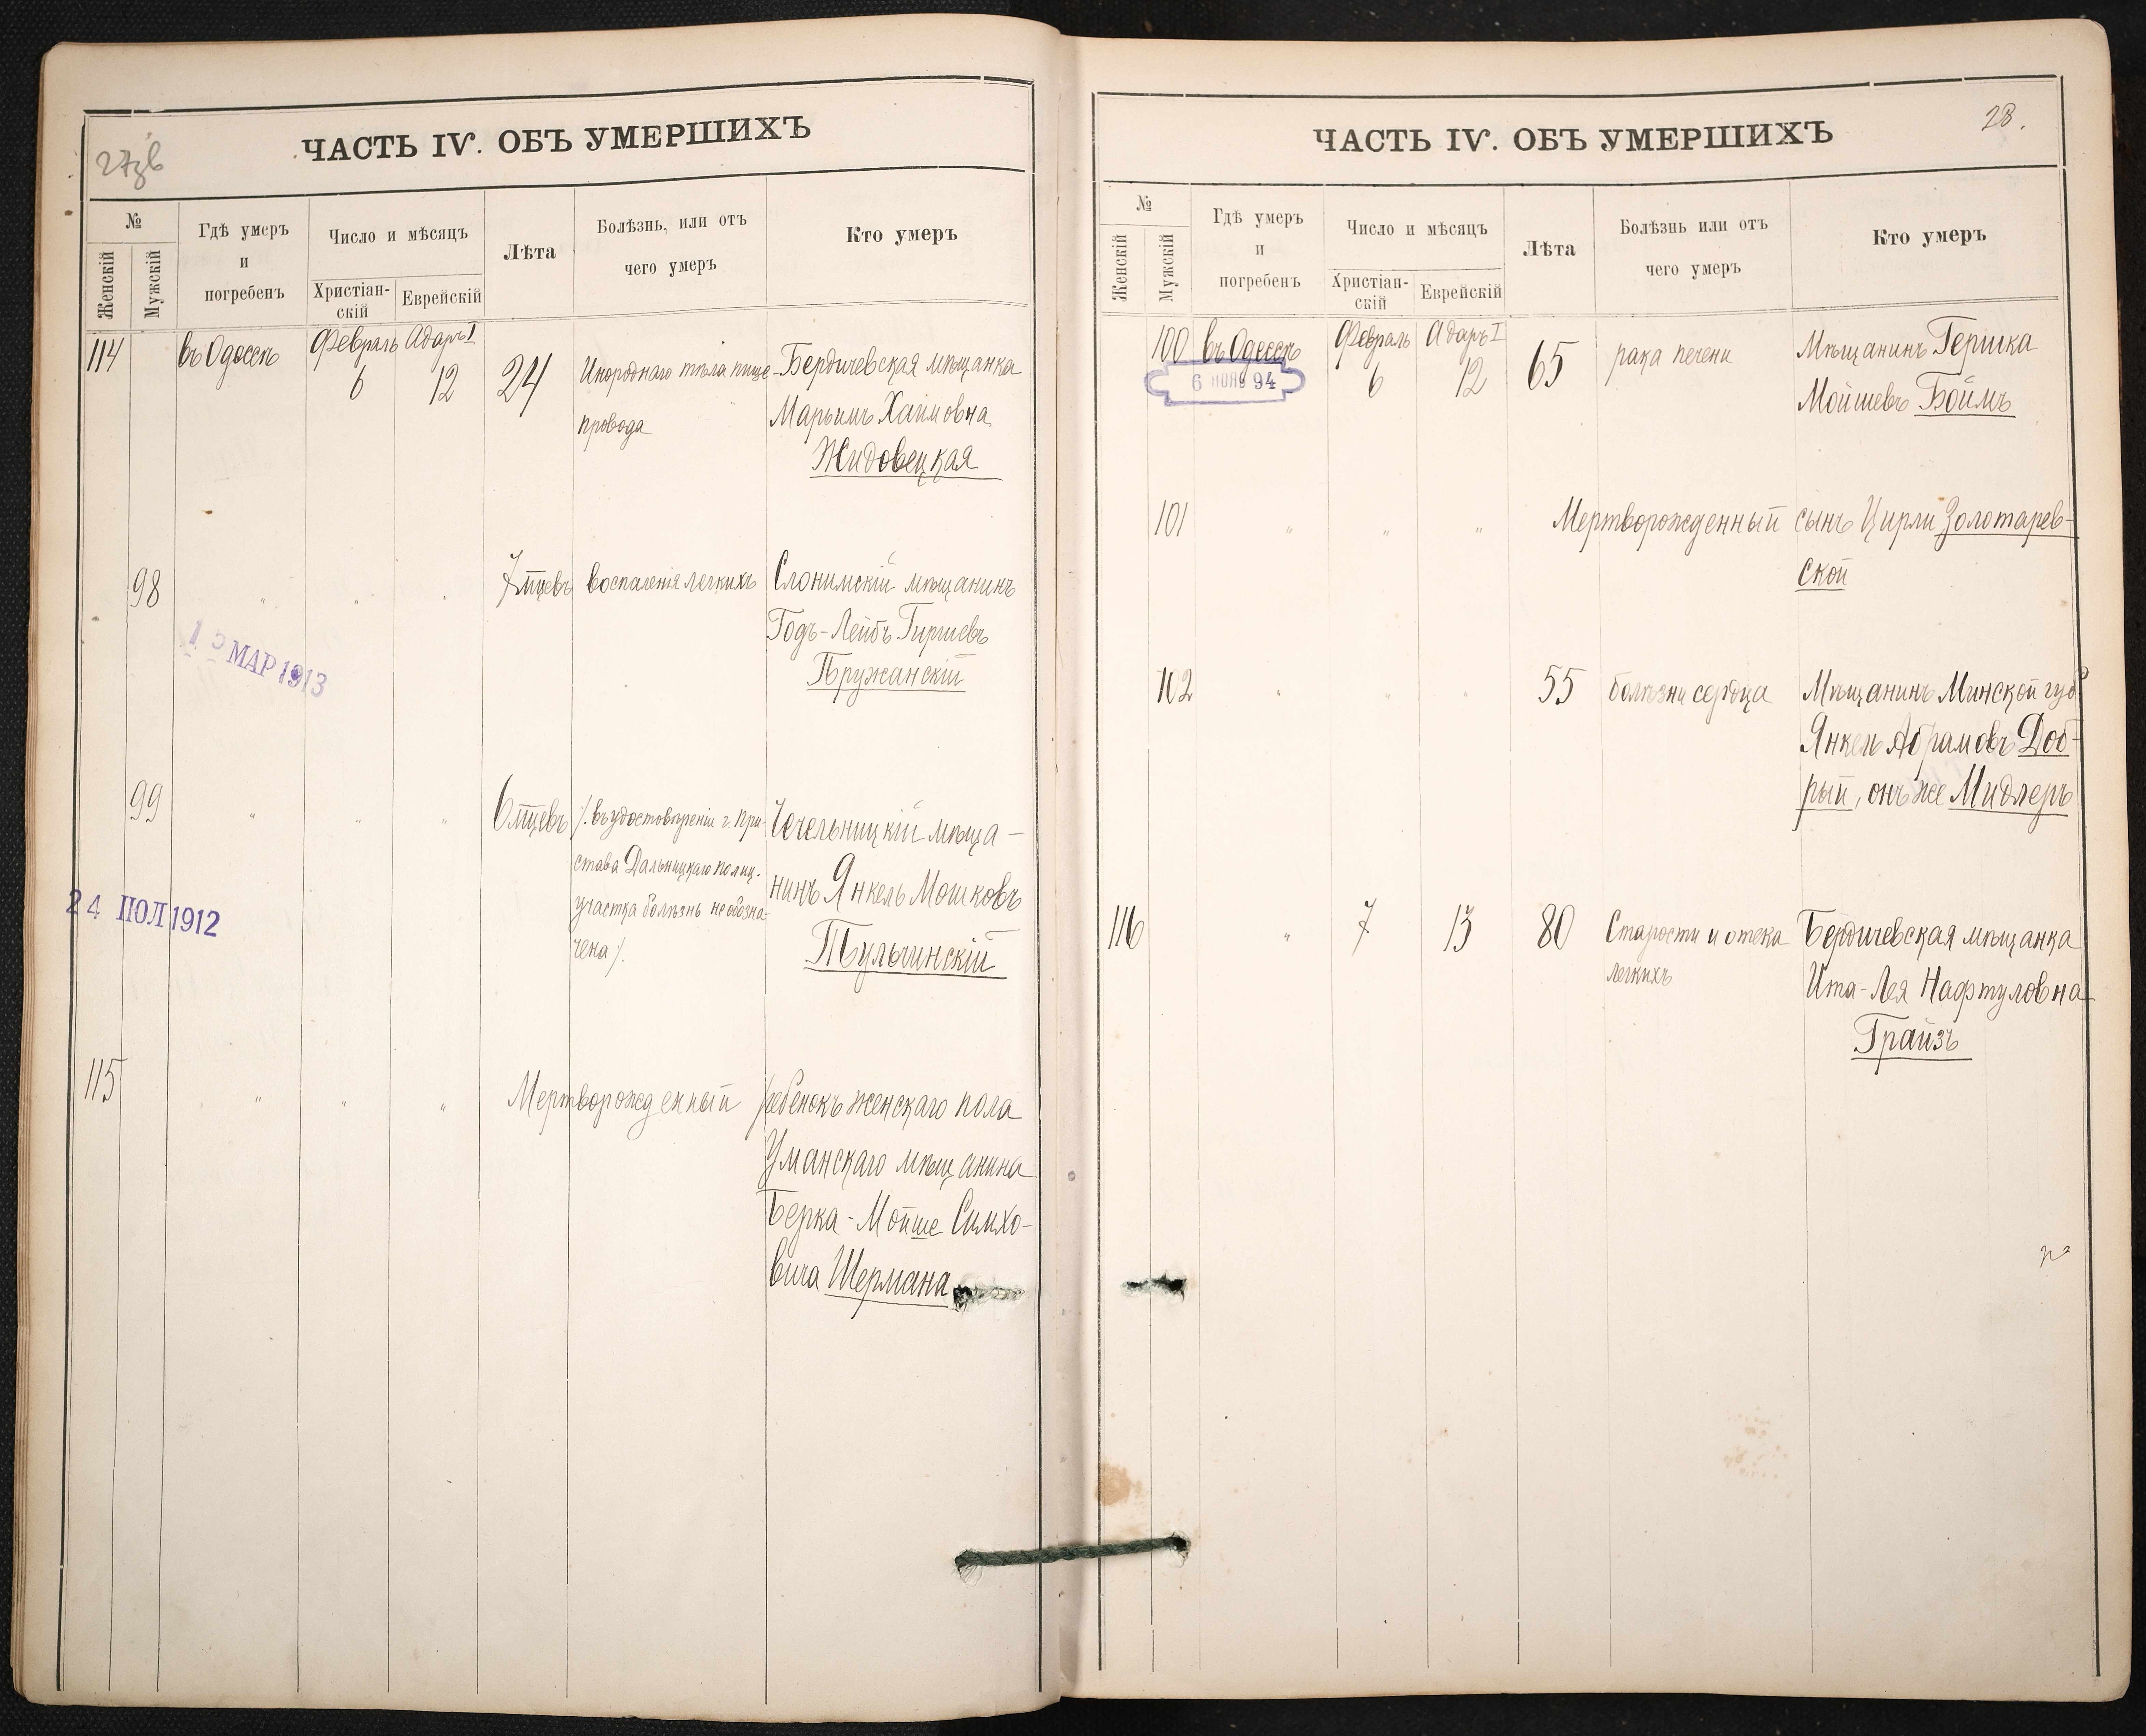 27зв
ЧАСТЬ IV. ОБЪ УМЕРШИХЪ
№
Женскій
Мужскій
Гдѣ умеръ
и
погребенъ
Число и мѣсяцъ
Христіан-
скій
Еврейскій
Лѣта
Болѣзнь, или отъ
чего умеръ
Кто умеръ
114 въ Одессѣ Февраль Адаръ I
6 12 24 Инороднаго тѣла пище- Бердичевская мѣщанка
провода Марьимъ Хаимовна
Жидовецкая
98 " " " 7 мцевъ воспаленія легкихъ Слонимскій мѣщанинъ
Годъ-Лейбъ Гиршевъ
Пружанскій
МАР 1913
99 " " " 6 мцевъ /. въ удостовѣреніи г. При- Чечельницкій мѣща-
става Дальницкаго полиц. нинъ Янкель Мошковъ
участка болѣзнь не обозна-
чена /. Тульчинскій
24 ИЮЛ 1912
115 " " " Мертворожденный ребенокъ женскаго пола
Уманскаго мѣщанина
Берка-Мойше Симхо-
вича Шермана
28.
ЧАСТЬ IV. ОБЪ УМЕРШИХЪ
№
Женскій
Мужскій
Гдѣ умеръ
и
погребенъ
Число и мѣсяцъ
Христіан-
скій
Еврейскій
Лѣта
Болѣзнь или отъ
чего умеръ
Кто умеръ
100 въ Одессѣ Февраль Адаръ I
6 12 65 рака печени Мѣщанинъ Гершка
Мойшевъ Боймъ
6 ІЮН 94
101 " " " Мертворожденный сынъ Цирли Золотарев-
ской
102 " " " 55 болѣзни сердца Мѣщанинъ Минской губ.
Янкель Абрамовъ Доб-
рый, онъ же Мидлеръ
116 " 7 13 80 Старости и отека Бердичевская мѣщанка
легкихъ Ита-Лея Нафтуловна
Грайзъ